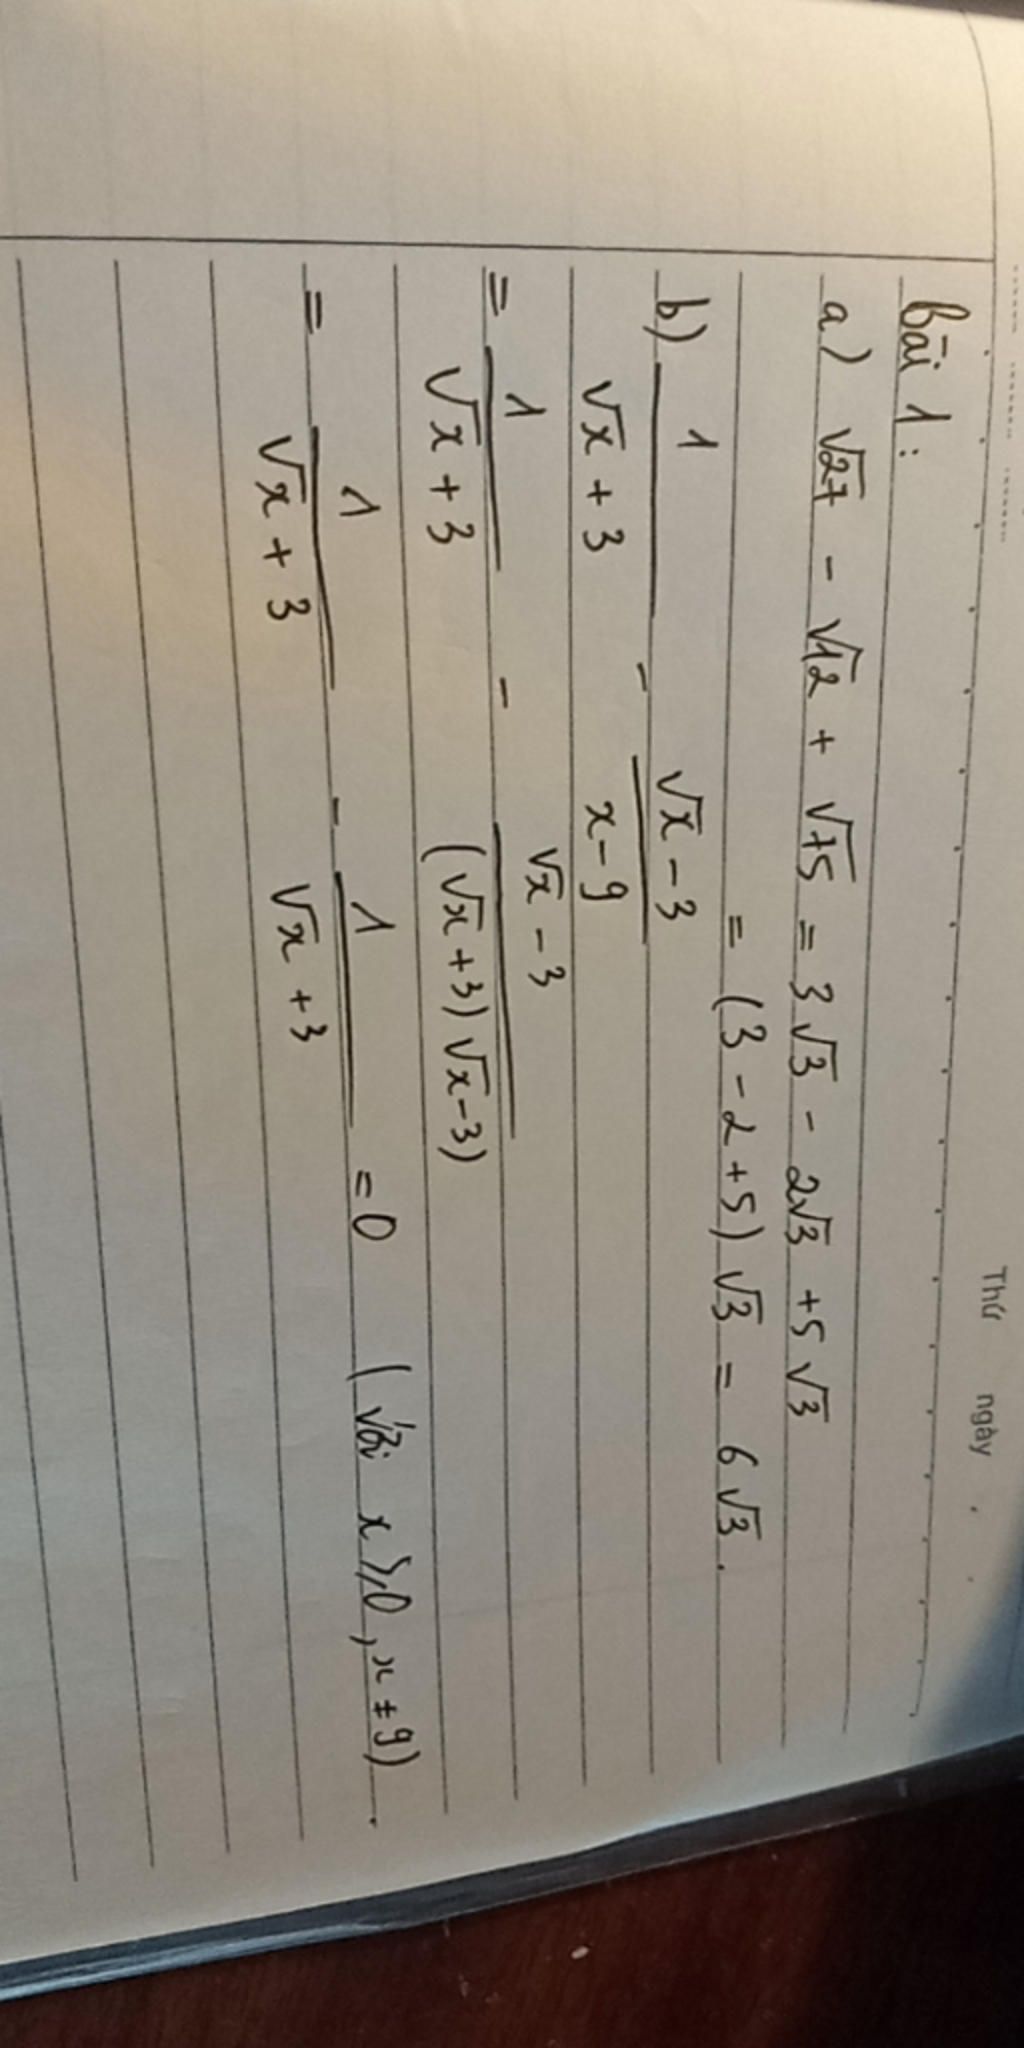 Thứ ngày
Bài 1:
a) √27 - √12 + √75 = 3√3 - 2√3 + 5√3
= (3 - 2 + 5) √3 = 6√3.
b) 1/(√x + 3) - (√x - 3)/(x - 9)
= 1/(√x + 3) - (√x - 3)/((√x + 3) √x - 3)
= 1/(√x + 3) - 1/(√x + 3) = 0 (với x ≥ 0, x ≠ 9).